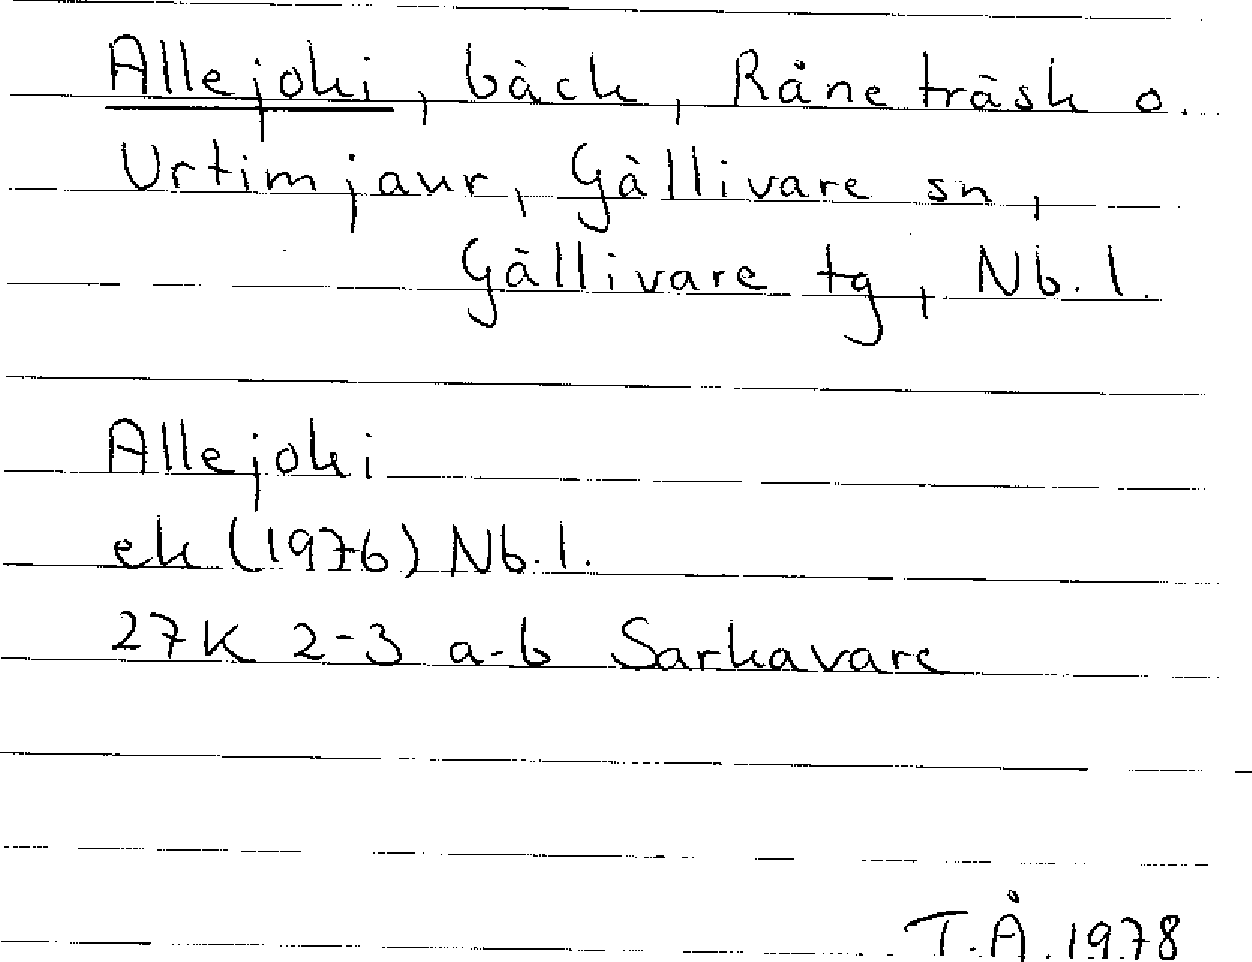 Allejoki, bäck, Råneträsk o.
Urtimjaur, Gällivare sn,
Gällivare tg, Nb. l.
Allejoki
ek (1976) Nb. l.
27K 2-3 a-b Sarkavare
T.Å. 1978